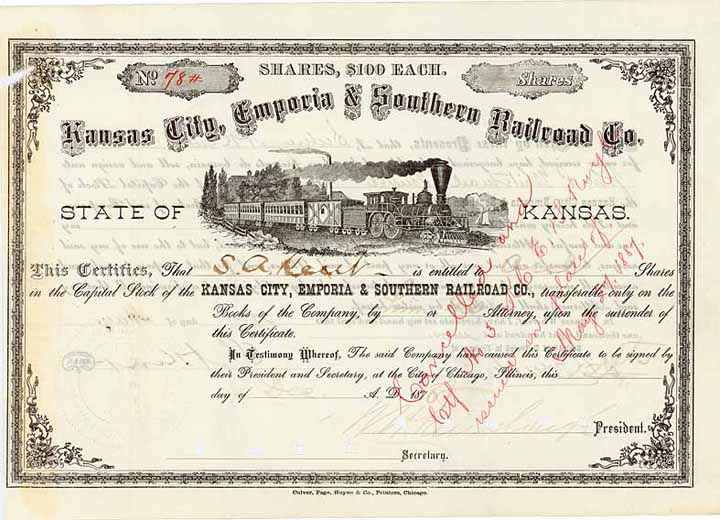 SHARES, $100 EACH.
No 78# Shares
Kansas City, Emporia & Southern Railroad Co.
STATE OF KANSAS.
This Certifies, That S. A. Kent is entitled to Shares
in the Capital Stock of the KANSAS CITY, EMPORIA & SOUTHERN RAILROAD CO., transferable only on the
Books of the Company, by or Attorney, upon the surrender of
this Certificate.
In Testimony Whereof, The said Company have caused this Certificate to be signed by
their President and Secretary, at the City of Chicago, Illinois, this
day of Dec A. D. 18
President.
Secretary.
Cancelled and
issued in place of
May 1887.
Culver, Page, Hoyne & Co., Printers, Chicago.